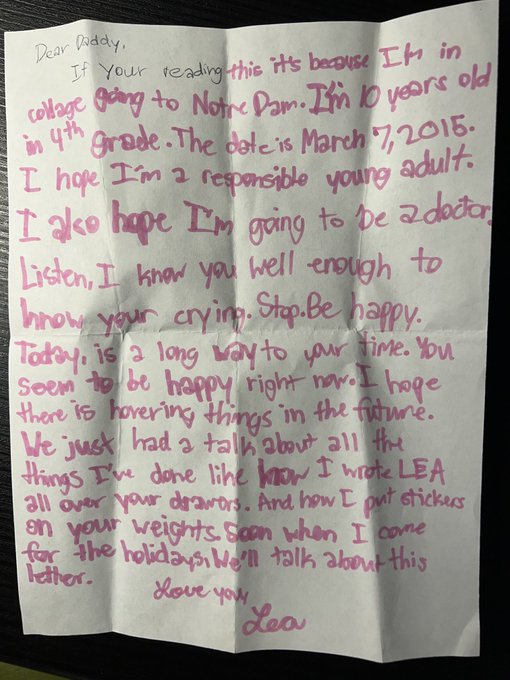 Dear Daddy,
If Your reading this it's because I'm in
collage going to Notre Dam. I'm 10 years old
in 4th grade. The date is March 7, 2015.
I hope I'm a responsible young adult.
I also hope I'm going to be a doctor.
Listen, I know you well enough to
know your crying. Stop. Be happy.
Today, is a long way to your time. You
seem to be happy right now. I hope
there is hovering things in the future.
We just had a talk about all the
things I've done like how I wrote LEA
all over your drawors. And how I put stickers
on your weights. Soon when I come
for the holidays, We'll talk about this
letter.
Love you,
Lea